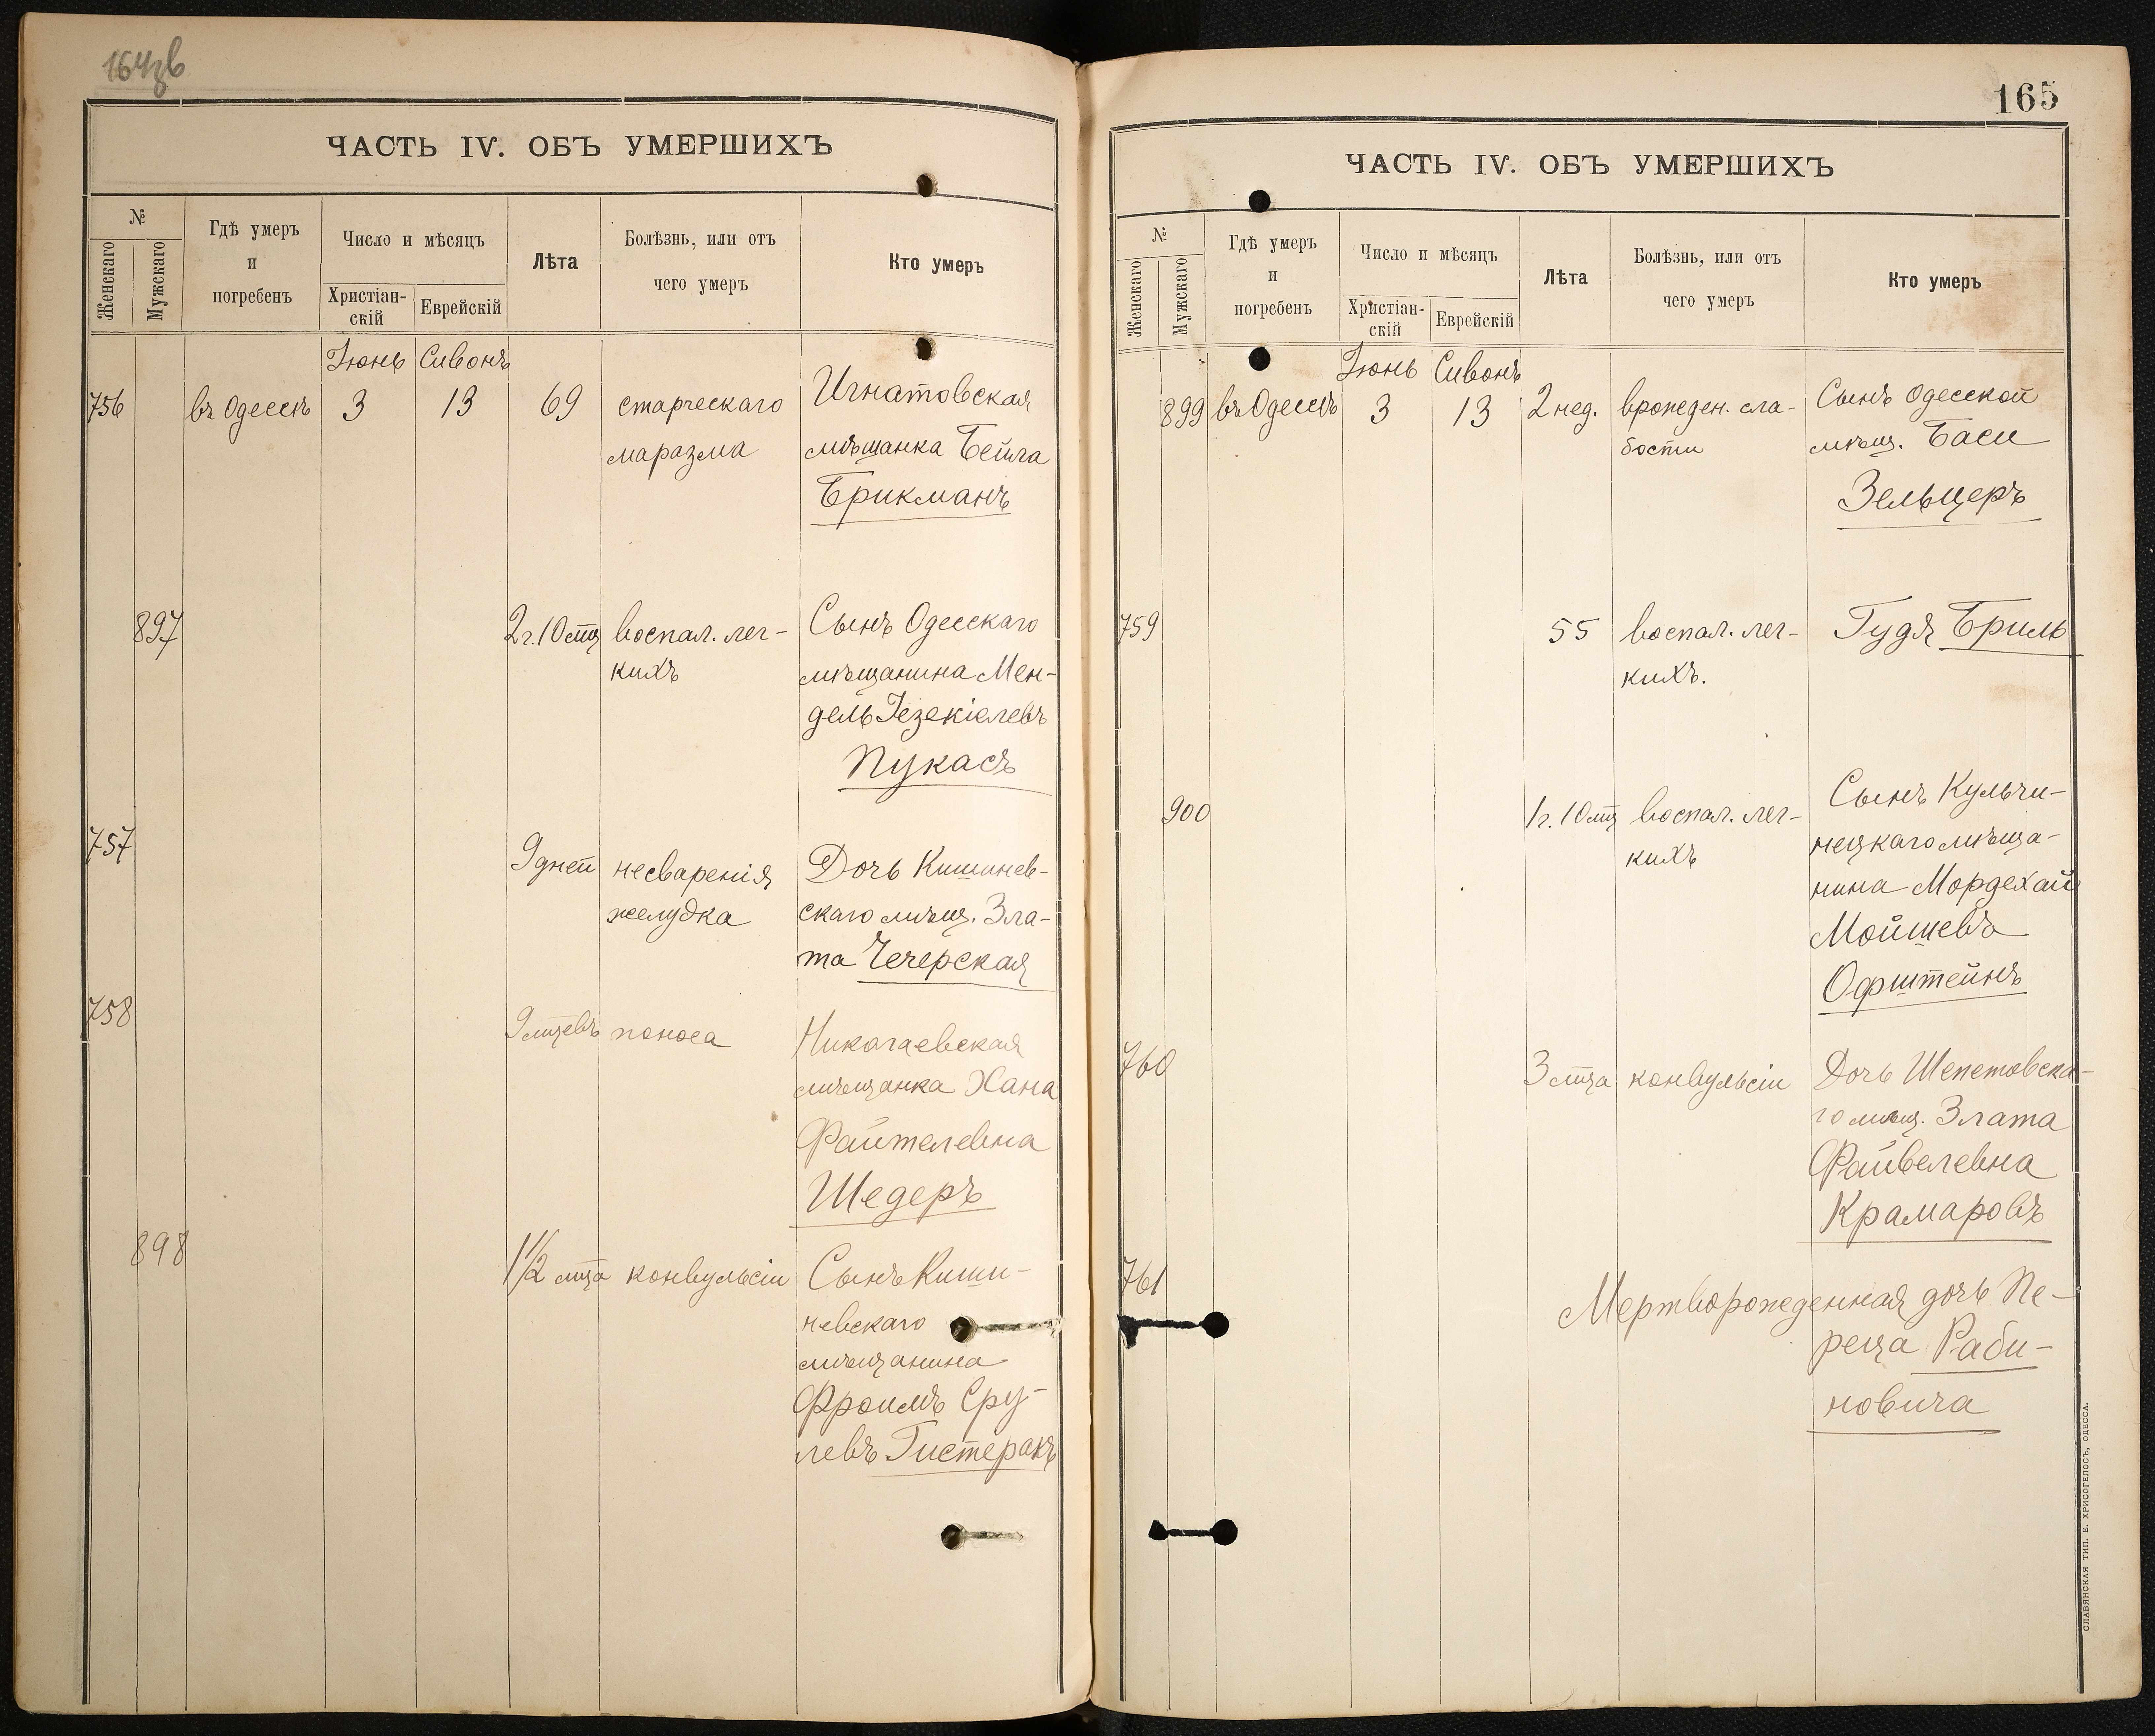 164зв
ЧАСТЬ IV. ОБЪ УМЕРШИХЪ
№
Женскаго
Мужскаго
Гдѣ умеръ
и
погребенъ
Число и мѣсяцъ
Христіан-
скій
Еврейскій
Лѣта
Болѣзнь, или отъ
чего умеръ
Кто умеръ
Іюнь Сивонъ
756 въ Одессѣ 3 13 69 старческаго Игнатовская
маразма мѣщанка Бейла
Брикманъ
897 2 г. 10 мц воспал. лег- Сынъ Одесскаго
кихъ мѣщанина Мен-
дель Іезекіелевъ
Пукасъ
757 9 дней несваренія Дочь Кишинев-
желудка скаго мѣщ. Зла-
та Чечерская
758 9 мцевъ поноса Николаевская
мѣщанка Хана
Файтелевна
Шедеръ
898 1½ мца конвульсіи Сынъ Киши-
невскаго
мѣщанина
Фроимъ Сру-
левъ Гистеракъ
165
ЧАСТЬ IV. ОБЪ УМЕРШИХЪ
№
Женскаго
Мужскаго
Гдѣ умеръ
и
погребенъ
Число и мѣсяцъ
Христіан-
скій
Еврейскій
Лѣта
Болѣзнь, или отъ
чего умеръ
Кто умеръ
Іюнь Сивонъ
899 въ Одессѣ 3 13 2 нед. врожден. сла- Сынъ Одесской
бости мѣщ. Баси
Зельцеръ
759 55 воспал. лег- Гудя Бриль
кихъ.
900 1 г. 10 мц воспал. лег- Сынъ Кульчи-
кихъ нецкаго мѣща-
нина Мордехай
Мойшевъ
Офштейнъ
760 3 мца конвульсіи Дочь Шепетовска-
го мѣщ. Злата
Файвелевна
Крамаровъ
761 Мертворожденная дочь Пе-
реца Раби-
новича
СЛАВЯНСКАЯ ТИП. Е. ХРИСОГЕЛОСЪ, ОДЕССА.